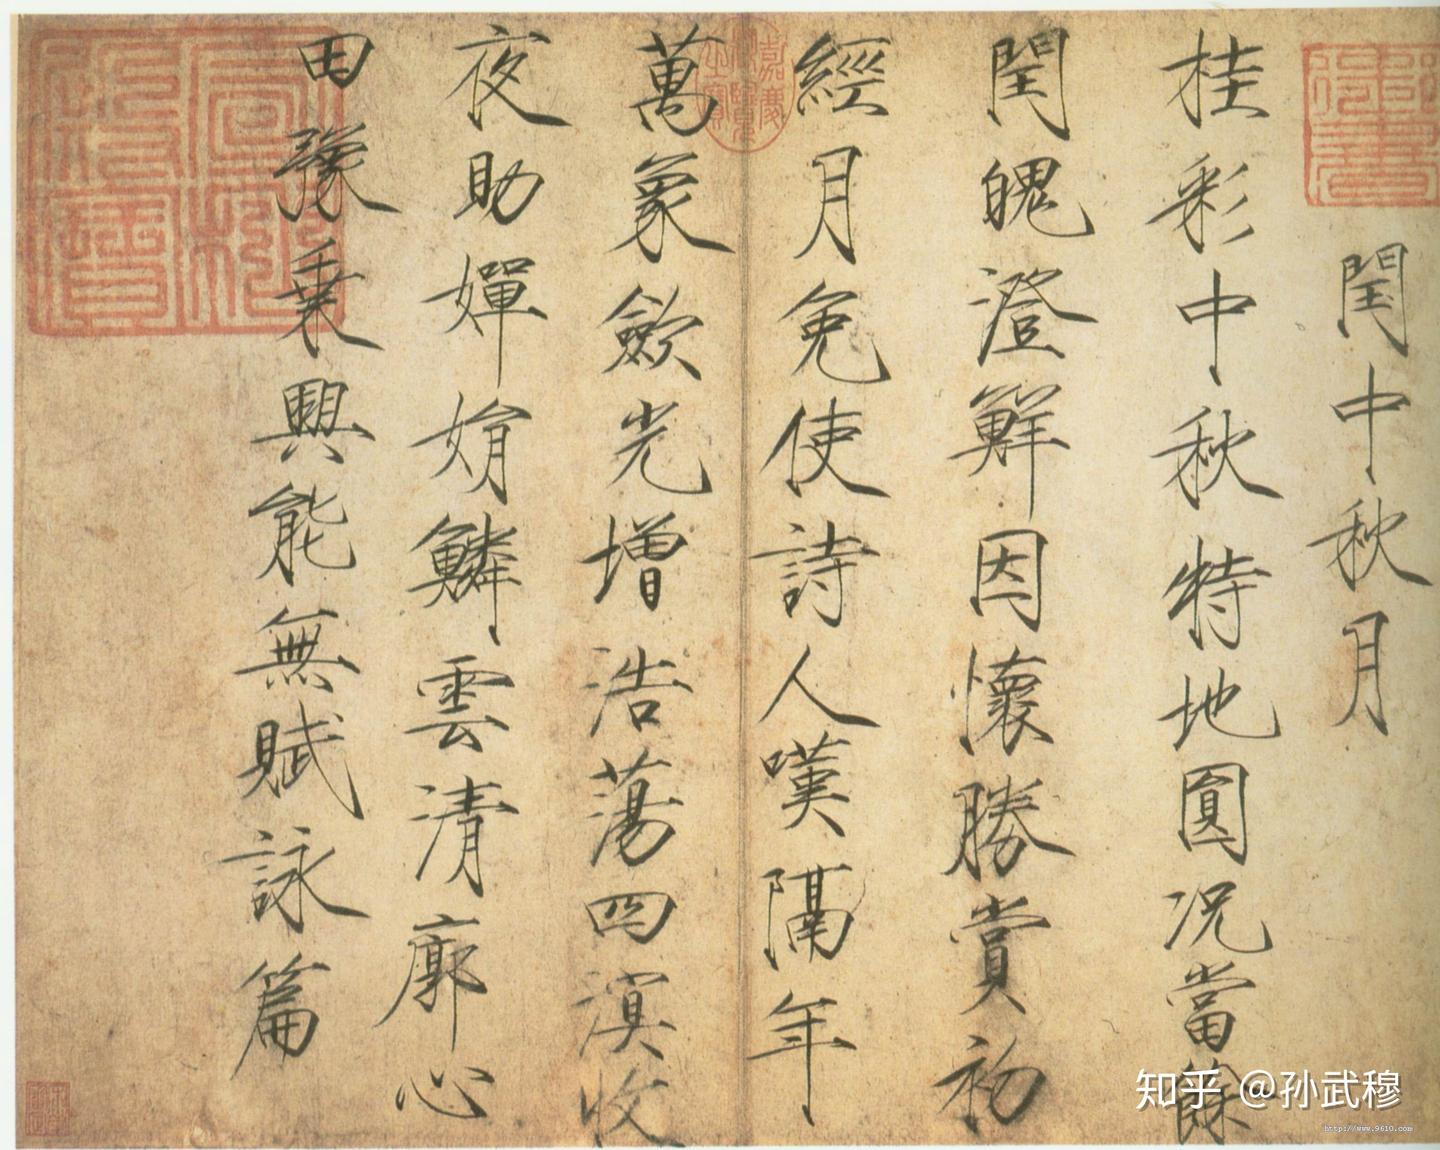 閏中秋月
桂彩中秋特地圓况當餘
閏魄澄鮮因懷勝賞初
經月免使詩人嘆隔年
萬象歛光增浩蕩四溟收
夜助嬋娟鱗雲清廓心
田豫乗興能無賦詠篇
嘉慶御覽之寶
知乎 @孙武穆
http://www.9610.com